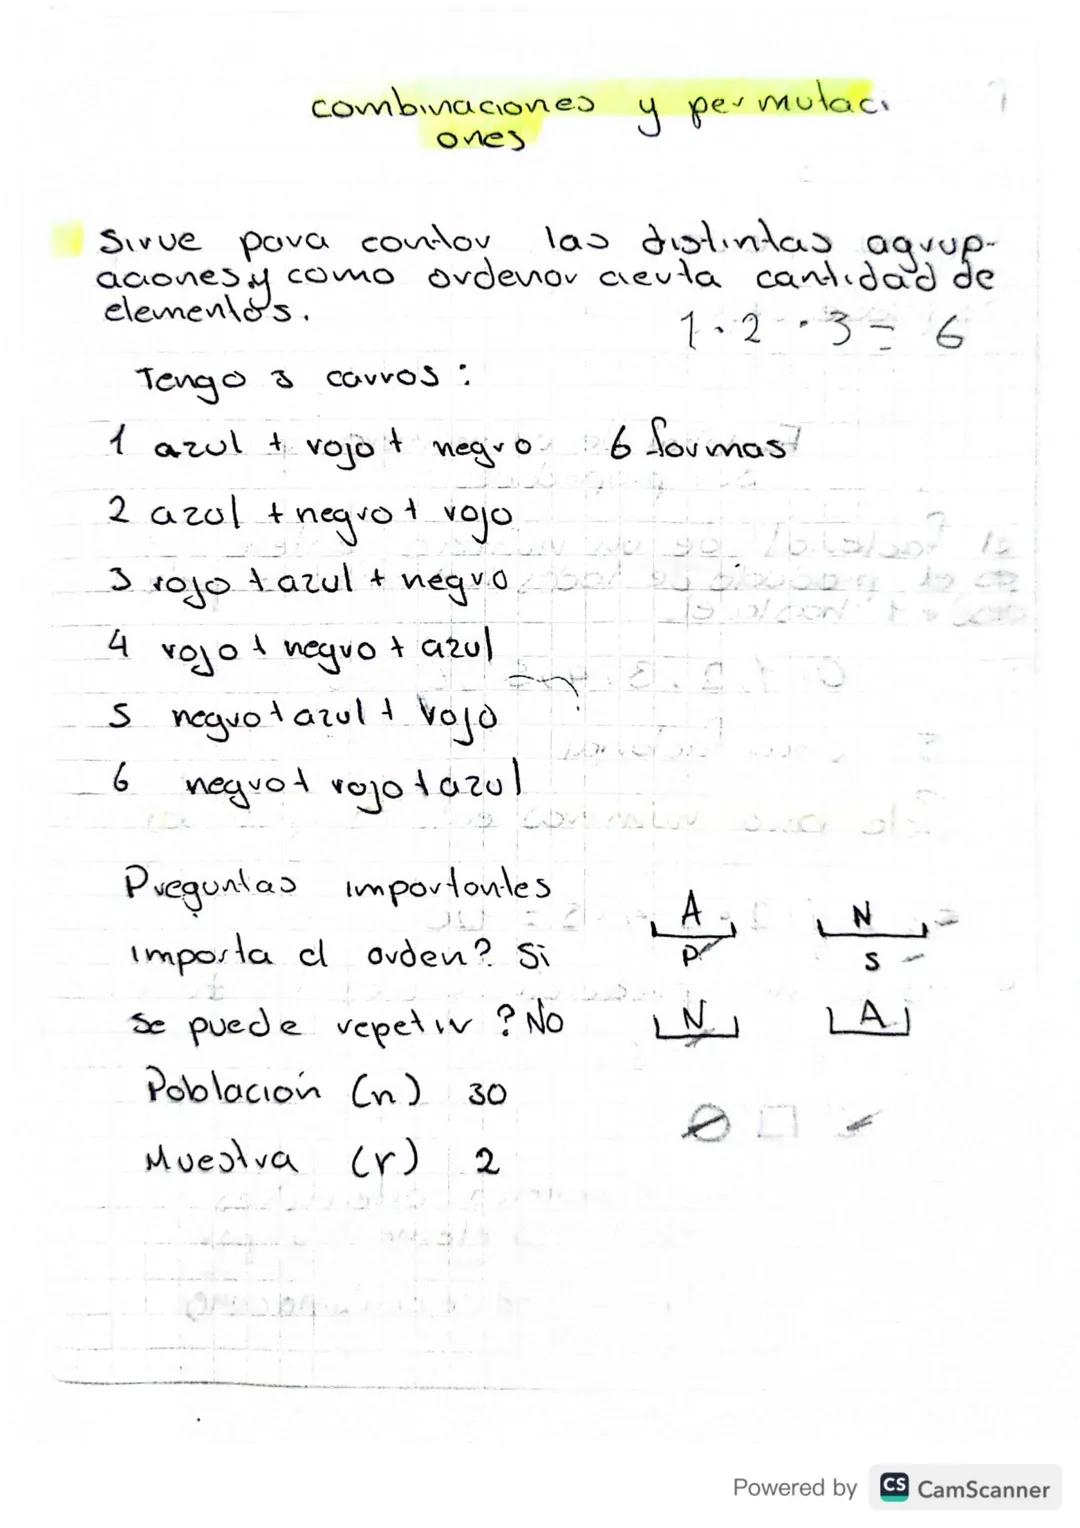 combinaciones y permutaci
ones
Sirve para contar las distintas agrup-
aciones y como ordenar cierta cantidad de
elementos.
1 · 2 · 3 = 6
Tengo 3 carros :
1 azul + rojo + negro 6 formas
2 azul + negro + rojo
3 rojo + azul + negro
4 rojo + negro + azul
5 negro + azul + rojo
6 negro + rojo + azul
Preguntas importantes
A N
importa el orden? Si
P S
se puede repetir ? NO
N A
Población (n) 30
Muestra (r) 2
Powered by CS CamScanner